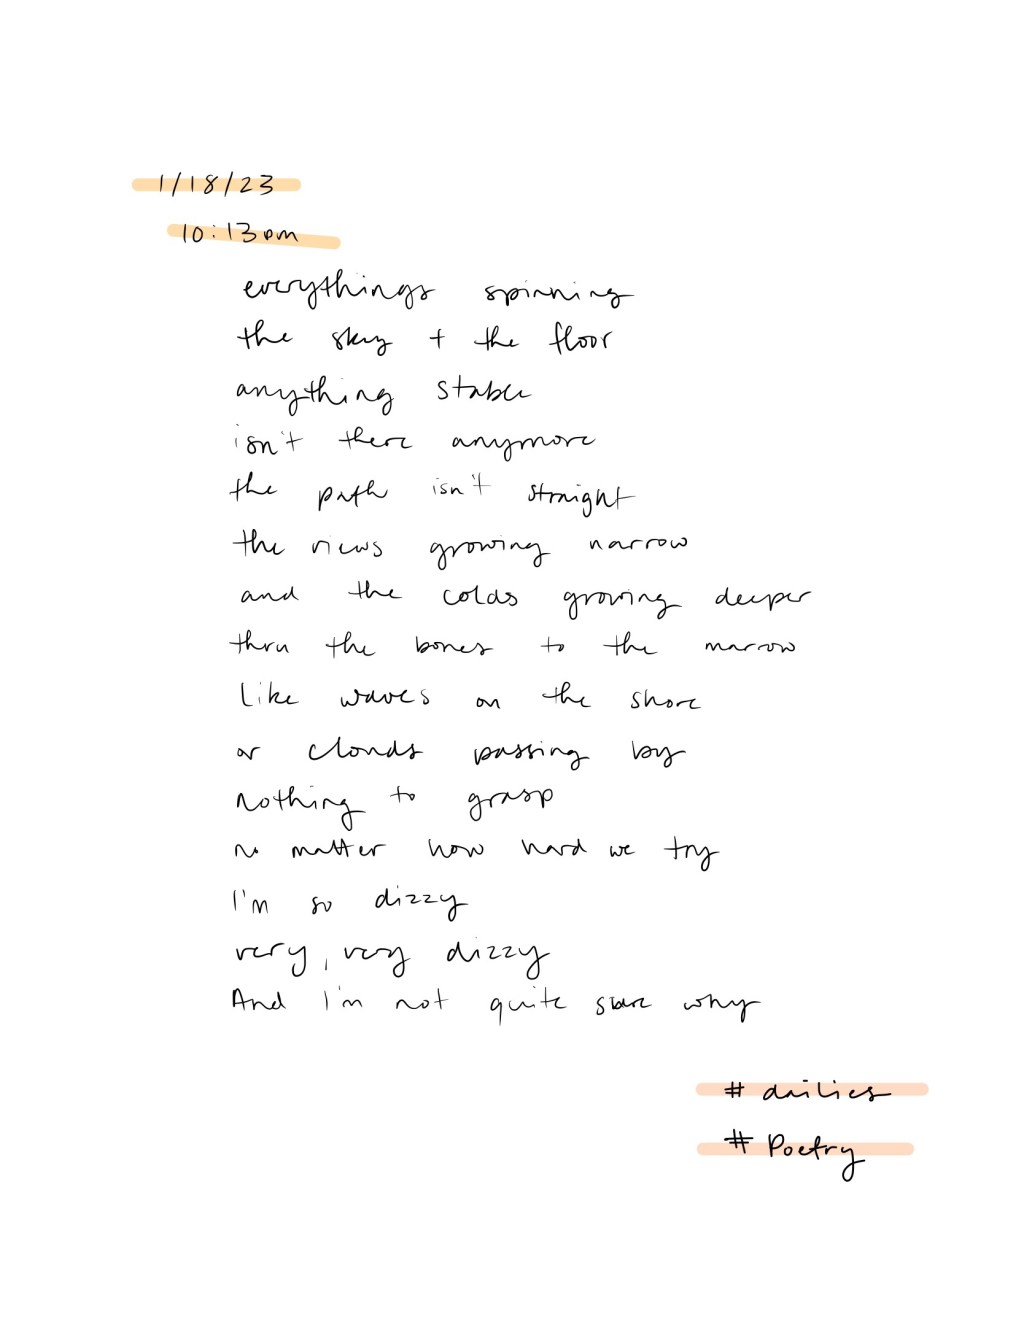 1/18/23
10:13pm
everythings spinning
the sky + the floor
anything stable
isn't there anymore
the path isn't straight
the views growing narrow
and the colds growing deeper
thru the bones to the marrow
like waves on the shore
or clouds passing by
nothing to grasp
no matter how hard we try
I'm so dizzy
very, very dizzy
And I'm not quite sure why
# dailies
# Poetry